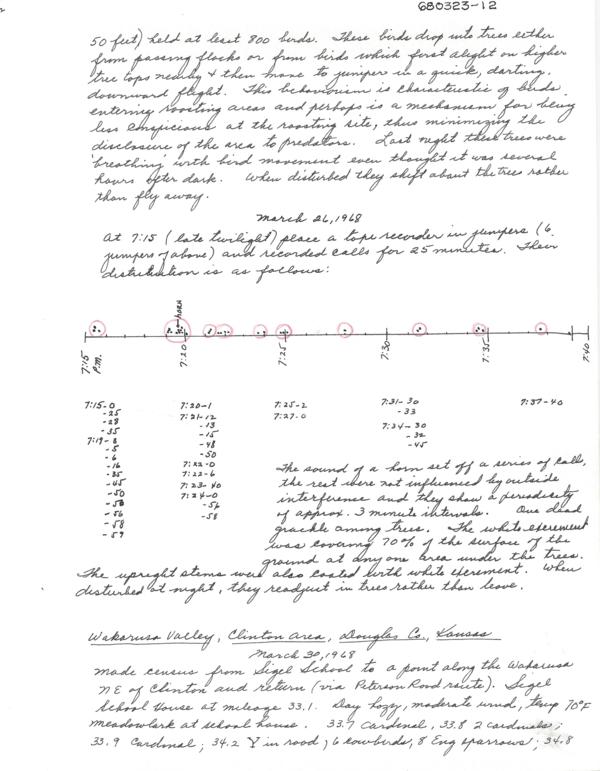 680323-12
50 feet) held at least 800 birds. These birds drop into trees either
from passing flocks or from birds which first alight on higher
tree tops nearby & then move to junipers in a quick, darting,
downward flight. This behaviorism is characteristic of birds
entering roosting areas and perhaps is a mechanism for being
less conspicuous at the roosting site, thus minimizing the
disclosure of the area to predators. Last night these trees were
'breathing' with bird movement even thought it was several
hours after dark. When disturbed they shift about the trees rather
than fly away.
March 26, 1968
At 7:15 (late twilight) place a tape recorder in junipers (6
junipers of above) and recorded calls for 25 minutes. Their
distribution is as follows:
HORN
7:15 P.M. 7:20 7:25 7:30 7:35 7:40
7:15-0 7:20-1 7:25-2 7:31-30 7:37-40
-25 7:21-12 7:27-0 -33
-28 -13 7:34-30
-35 -15 -32
7:19-3 -48 -45
-5 -50
-6 7:22-0
-16 7:23-6
-35 7:23-40
-45 7:24-0
-50 -56
-53 -58
-56
-58
-59
The sound of a horn set off a series of calls,
the rest were not influenced by outside
interference and they show a periodicity
of approx. 3 minute intervals. One dead
grackle among trees. The white excrement
was covering 70% of the surface of the
ground at any one area under the trees.
The upright stems were also coated with white excrement. When
disturbed at night, they readjust in trees rather than leave.
Wakarusa Valley, Clinton area, Douglas Co., Kansas
March 30, 1968
Made census from Sigel School to a point along the Wakarusa
NE of Clinton and return (via Peterson Road route). Sigel
School House at mileage 33.1. Day hazy, moderate wind, temp 70°F
meadowlark at school house. 33.7 Cardinal, 33.8 2 cardinals;
33.9 Cardinal; 34.2 Y in road; 6 cowbirds, 8 Eng sparrows; 34.8